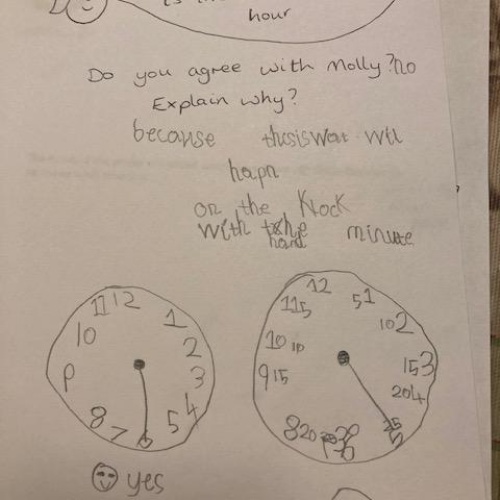 hour
Do you agree with Molly? no
Explain why?
because thisiswat wil
hapn
on the Klock
with the hand minute
11 12 1
10 2
9 3
8 4
7 5
12
115 51
10 10 102
915 153
204
820
yes